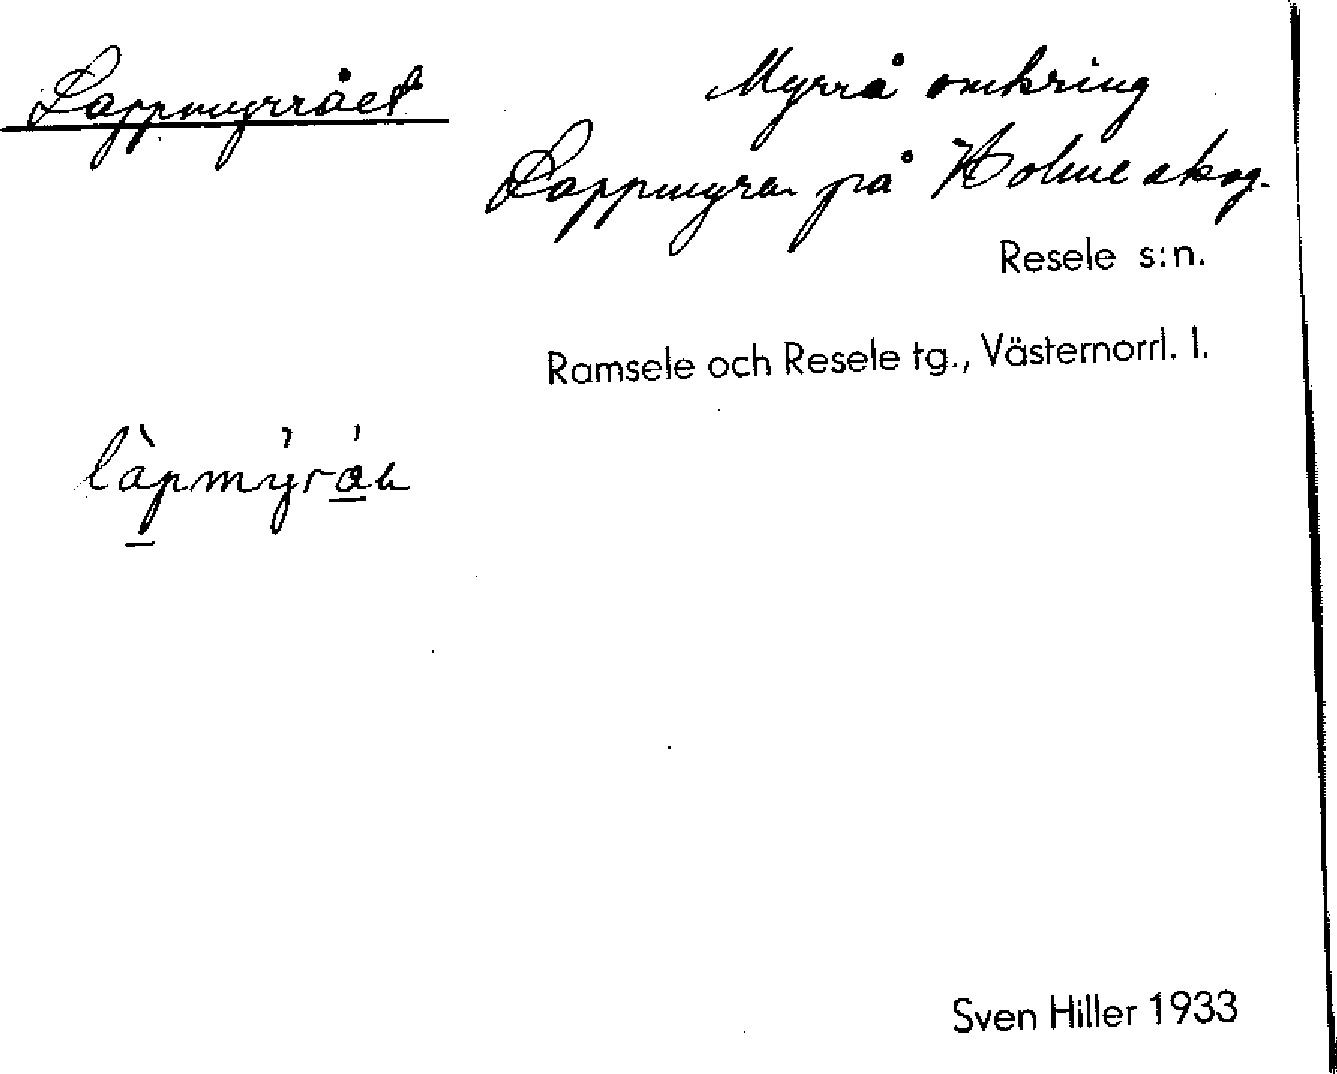 Lappmyrrået
Myrrå omkring
Lappmyran på Holme skog.
Resele s:n.
Ramsele och Resele tg., Västernorrl. l.
Sven Hiller 1933